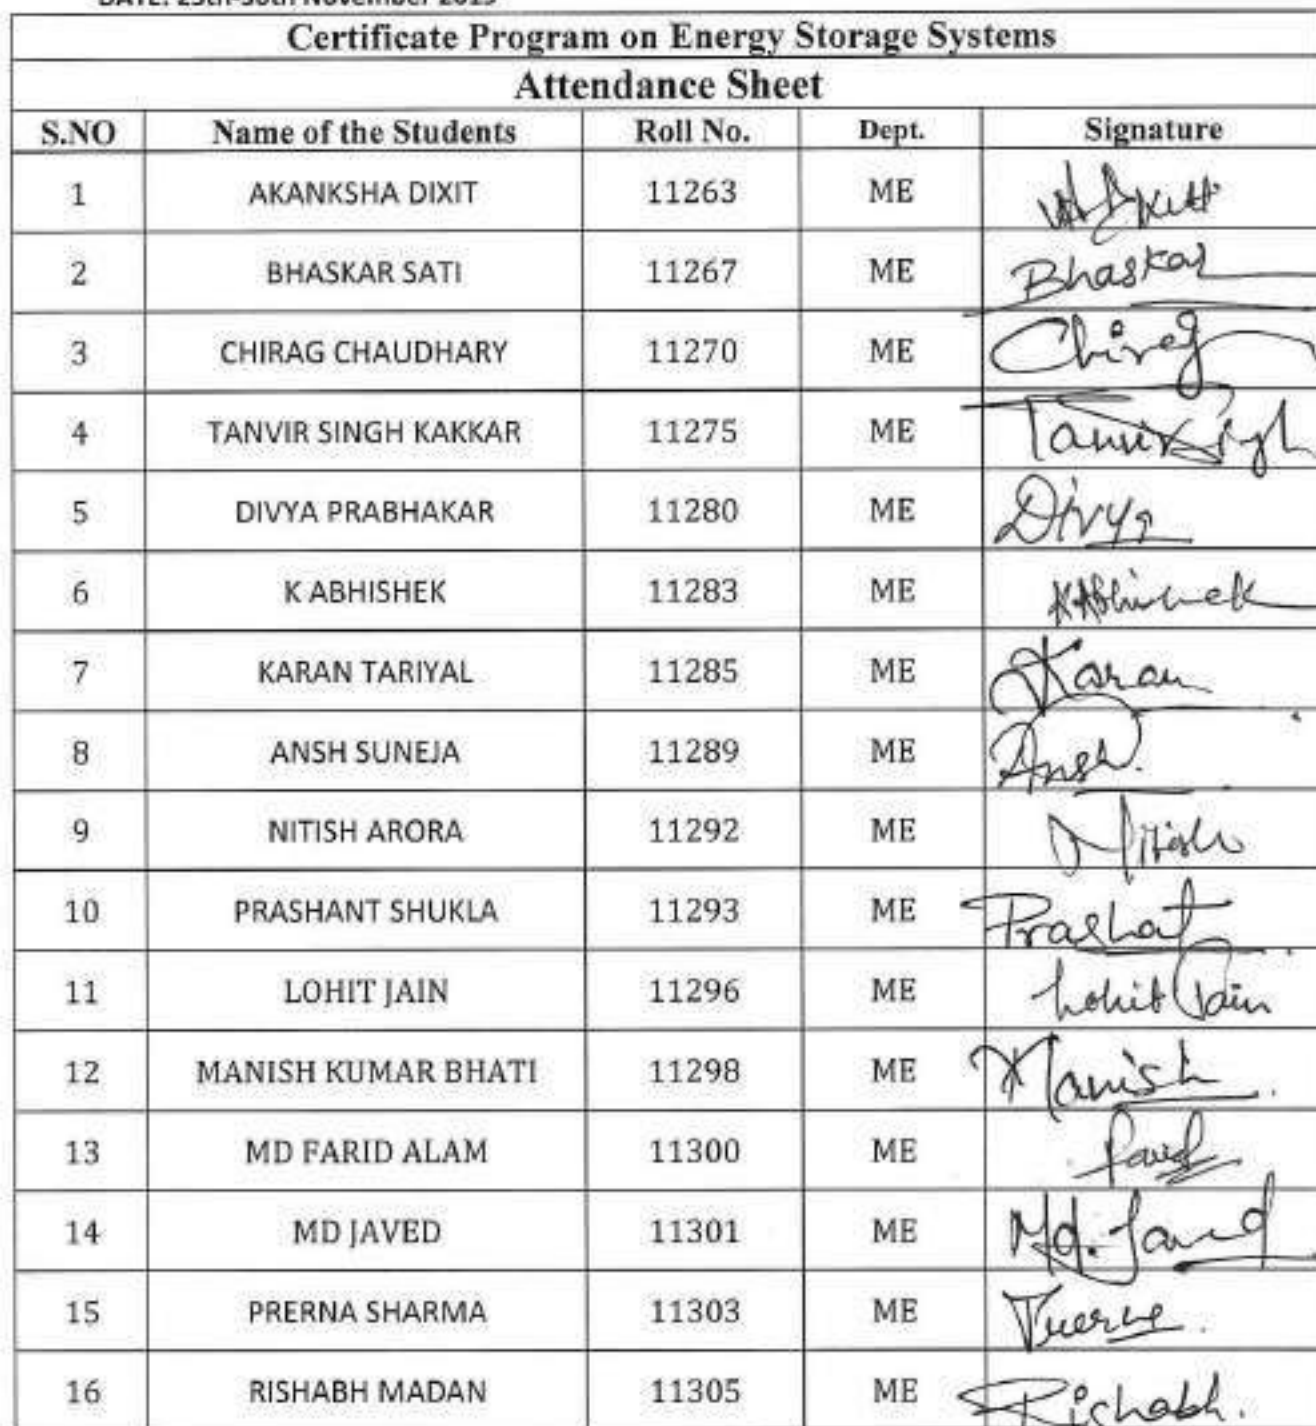 DATE: 25th-30th November 2019
Certificate Program on Energy Storage Systems
Attendance Sheet
S.NO Name of the Students Roll No. Dept. Signature
1 AKANKSHA DIXIT 11263 ME
2 BHASKAR SATI 11267 ME Bhaskar
3 CHIRAG CHAUDHARY 11270 ME Chirag
4 TANVIR SINGH KAKKAR 11275 ME Tanvir Singh
5 DIVYA PRABHAKAR 11280 ME Divya
6 K ABHISHEK 11283 ME KAbhishek
7 KARAN TARIYAL 11285 ME Karan
8 ANSH SUNEJA 11289 ME Ansh.
9 NITISH ARORA 11292 ME Nitish
10 PRASHANT SHUKLA 11293 ME Prashat
11 LOHIT JAIN 11296 ME Lohit Jain
12 MANISH KUMAR BHATI 11298 ME Manish
13 MD FARID ALAM 11300 ME Farid
14 MD JAVED 11301 ME Md. Javed
15 PRERNA SHARMA 11303 ME Prerna.
16 RISHABH MADAN 11305 ME Rishabh.